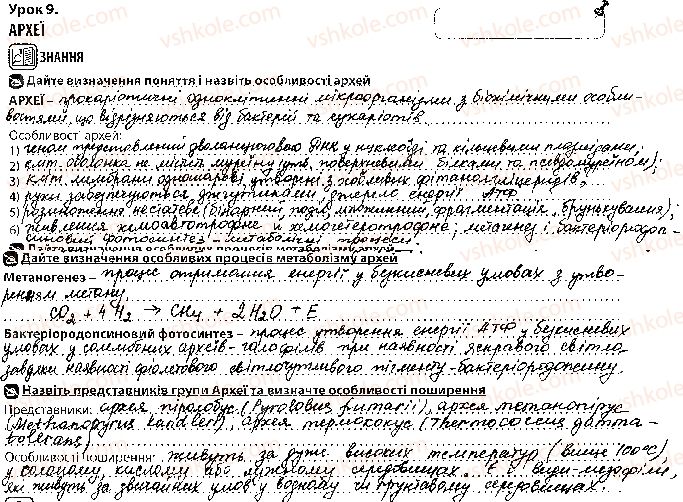 Урок 9.
АРХЕЇ
ЗНАННЯ
Дайте визначення поняття і назвіть особливості архей
АРХЕЇ – прокаріотичні одноклітинні мікроорганізми з біохімічними особли-
востями, що відрізняються від бактерій та еукаріотів.
Особливості архей:
1) геном представлений дволанцюговою ДНК у нуклеоїді та кільцевими плазмідами;
2) кліт. оболонка не містить муреїну (утв. поверхневими білками та псевдомуреїном);
3) кліт. мембрани одношарові, утворені з особливих фітанолгліцеридів;
4) рухи забезпечуються джгутиками, джерело енергії АТФ
5) розмноження нестатеве (бінарний поділ, множинний, фрагментація, брунькування);
6) живлення хемоавтотрофне й хемогетеротрофне; метаногенез і бактеріородоп-
синовий фотосинтез – метаболічні процеси.
Дайте визначення особливих процесів метаболізму архей
Метаногенез – процес отримання енергії у безкисневих умовах з утво-
ренням метану.
CO2 + 4H2 → CH4 + 2H2O + E
Бактеріородопсиновий фотосинтез – процес утворення енергії АТФ у безкисневих
умовах у солелюбних архей-галофілів при наявності яскравого світла
завдяки наявності фіолетового світлочутливого пігменту-бактеріородопсину.
Назвіть представників групи Археї та визначте особливості поширення
Представники: архея піролобус (Pyrolobus fumarii), архея метанопірус
(Methanopyrus kandleri), архея термококус (Thermococcus gamma-
tolerans)
Особливості поширення: живуть за дуже високих температур (вище 100°С),
у солоному, кислому або лужному середовищах. Є й види-мезофіли,
які живуть за звичайних умов у водному чи ґрунтовому середовищах.
vshkole.com